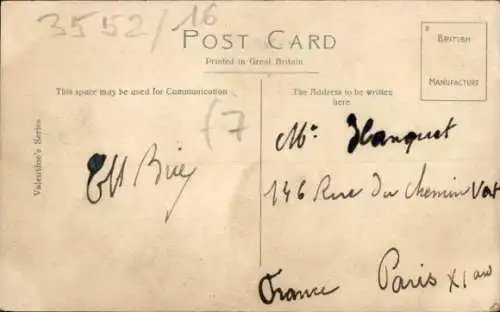 3552/16
POST CARD
Printed in Great Britain
BRITISH
MANUFACTURE
This space may be used for Communication
The Address to be written
here.
Valentine's Series
f7
Mr. Hanquet
146 Rue du Chemin Vert
France Paris XI